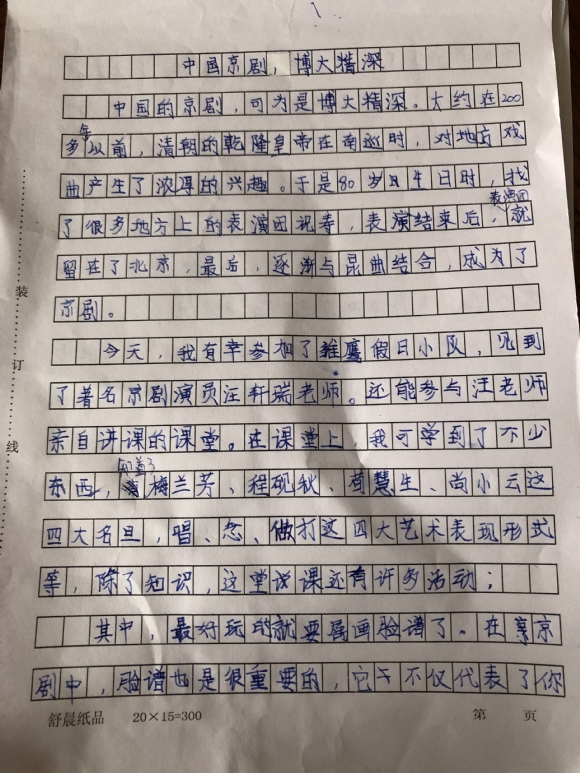 中国京剧，博大精深
中国的京剧，可为是博大精深。大约在200
多年以前，清朝的乾隆皇帝在南巡时，对地方戏
曲产生了浓厚的兴趣。于是80岁生日时，找
了很多地方上的表演团祝寿，表演结束后，表演团就
留在了北京，最后，逐渐与昆曲结合，成为了
京剧。
今天，我有幸参加了雏鹰假日小队，见到
了著名京剧演员汪轩瑞老师。还能参与汪老师
亲自讲课的课堂。在课堂上，我可学到了不少
东西，知道了梅兰芳、程砚秋、荀慧生、尚小云这
四大名旦，唱、念、做打这四大艺术表现形式
等，除了知识，这堂课还有许多活动；
其中，最好玩的就要属画脸谱了。在京
剧中，脸谱也是很重要的，它不仅代表了你
装
订
线
舒晨纸品 20×15=300 第 页